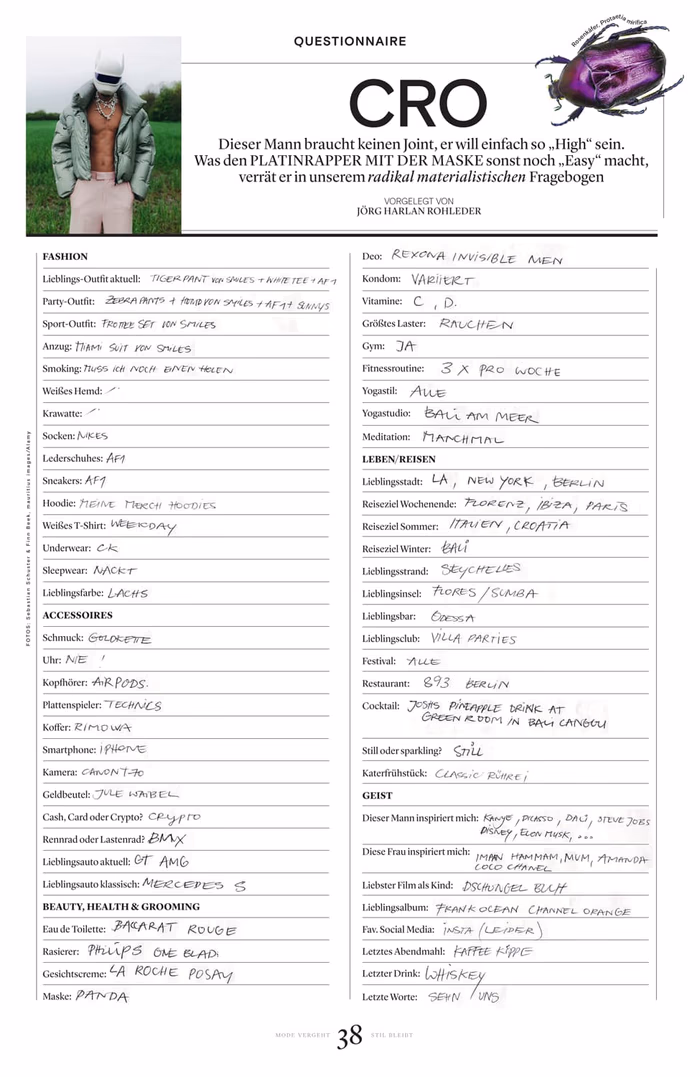 QUESTIONNAIRE
Rosenkäfer, Protaetia mirifica
CRO
Dieser Mann braucht keinen Joint, er will einfach so „High“ sein.
Was den PLATINRAPPER MIT DER MASKE sonst noch „Easy“ macht,
verrät er in unserem radikal materialistischen Fragebogen
VORGELEGT VON
JÖRG HARLAN ROHLEDER
FASHION
Lieblings-Outfit aktuell: TIGERPANT VON SMILES + WHITE TEE + AF1
Party-Outfit: ZEBRAPANTS + HEMD VON SMILES + AF1 + SUNNYS
Sport-Outfit: FROTTEE SET VON SMILES
Anzug: MIAMI SUIT VON SMILES
Smoking: MUSS ICH NOCH EINEN HOLEN
Weißes Hemd: -
Krawatte: -
Socken: NIKES
Lederschuhes: AF1
Sneakers: AF1
Hoodie: MEINE MERCH HOODIES
Weißes T-Shirt: WEEKDAY
Underwear: CK
Sleepwear: NACKT
Lieblingsfarbe: LACHS
ACCESSOIRES
Schmuck: GOLDKETTE
Uhr: NIE !
Kopfhörer: AIRPODS.
Plattenspieler: TECHNICS
Koffer: RIMOWA
Smartphone: IPHONE
Kamera: CANON T-70
Geldbeutel: JULE WAIBEL
Cash, Card oder Crypto? CRYPTO
Rennrad oder Lastenrad? BMX
Lieblingsauto aktuell: GT AMG
Lieblingsauto klassisch: MERCEDES S
BEAUTY, HEALTH & GROOMING
Eau de Toilette: BACCARAT ROUGE
Rasierer: PHILIPS ONE BLADE
Gesichtscreme: LA ROCHE POSAY
Maske: PANDA
Deo: REXONA INVISIBLE MEN
Kondom: VARIIERT
Vitamine: C, D.
Größtes Laster: RAUCHEN
Gym: JA
Fitnessroutine: 3 X PRO WOCHE
Yogastil: ALLE
Yogastudio: BALI AM MEER
Meditation: MANCHMAL
LEBEN/REISEN
Lieblingsstadt: LA, NEW YORK, BERLIN
Reiseziel Wochenende: FLORENZ, IBIZA, PARIS
Reiseziel Sommer: ITALIEN, CROATIA
Reiseziel Winter: BALI
Lieblingsstrand: SEYCHELLES
Lieblingsinsel: FLORES / SUMBA
Lieblingsbar: ODESSA
Lieblingsclub: VILLA PARTIES
Festival: ALLE
Restaurant: 893 BERLIN
Cocktail: JOSHS PINEAPPLE DRINK AT
GREEN ROOM IN BALI CANGGU
Still oder sparkling? STILL
Katerfrühstück: CLASSIC RÜHREI
GEIST
Dieser Mann inspiriert mich: KANYE, PICASSO, DALI, STEVE JOBS
DISNEY, ELON MUSK, ...
Diese Frau inspiriert mich: IMAN HAMMAM, MUM, AMANDA
COCO CHANEL
Liebster Film als Kind: DSCHUNGEL BUCH
Lieblingsalbum: FRANK OCEAN CHANNEL ORANGE
Fav. Social Media: INSTA (LEIDER)
Letztes Abendmahl: KAFFEE KIPPE
Letzter Drink: WHISKEY
Letzte Worte: SEHN UNS
FOTOS: Sebastian Schuster & Finn Beek, mauritius images/Alamy
MODE VERGEHT 38 STIL BLEIBT